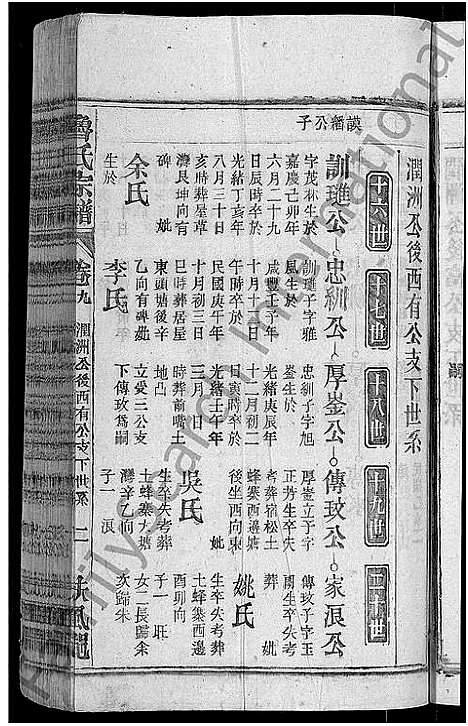 潤洲公後西有公支下世系
十六世
十七世
十八世
十九世
二十世
謨酒公子
訓璡公
忠紃公
厚崟公
傳玫公
家浪公
字茂林生於
嘉慶己卯年
六月二十九
日辰時卒於
光緒丁亥年
八月三十日
亥時葬屋草
灣艮坤向有
碑
妣
余氏
生於
訓璡子字雅
風生於
咸豐壬子年
十月十三日
午時卒於
民國庚午年
十月初三日
巳時葬居屋
東頭姑後辛
乙向有碑妣
李氏
忠紃子字旭
崟生於
光緒庚辰年
十二月初二
日寅時卒於
光緒壬午年
三月
日
時葬前嘴土
地占
立愛三公支
下傳玫爲嗣
厚崟立子字
正芳生卒失
考葬宿松土
蜂寨西邊塘
後坐西向東
妣
吳氏
生卒失考葬
土蜂寨大塘
灣辛乙向
子一
浪
傳玫子字玉
周生卒失考
葬
妣
姚氏
生卒失考葬
土蜂寨西邊
酉卯向
子一
旺
女二長歸余
次歸朱
魯氏宗譜
卷九
潤洲公後西有公支下世系
二
扶風邑